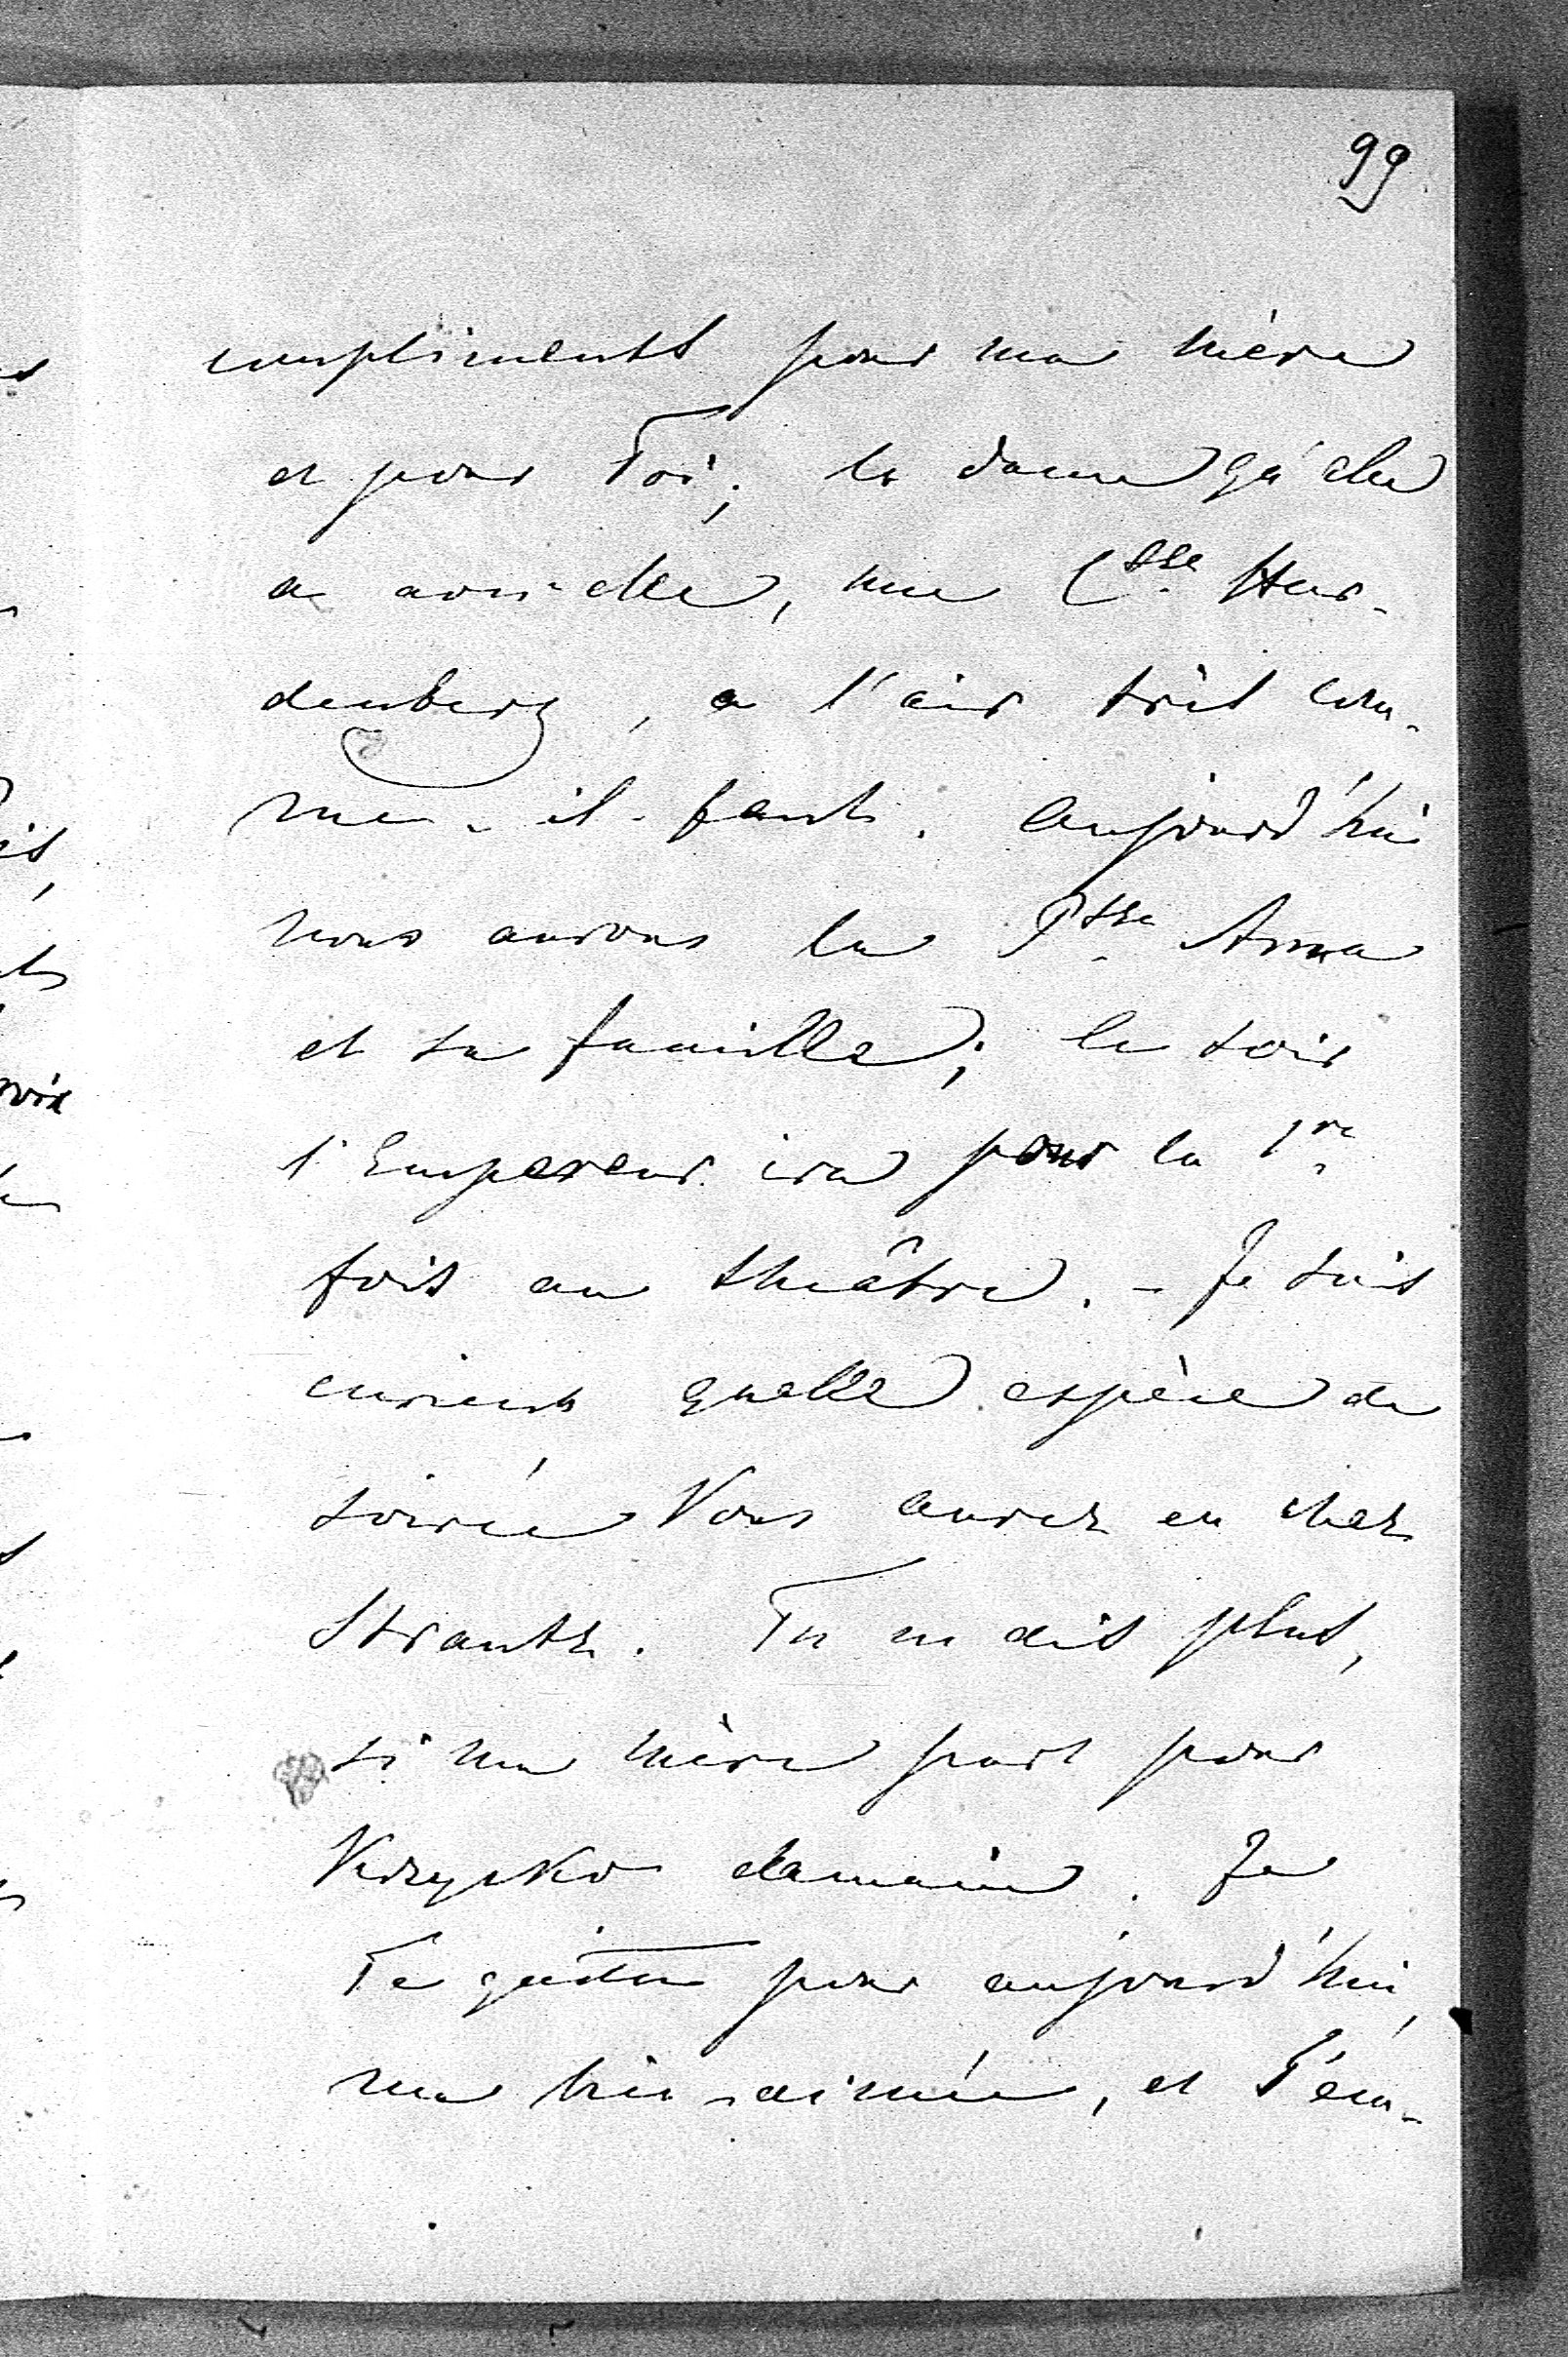 99
compliments pour ma mère
et pour Toi; la dame qu'elle
a avec elle, une C.sse Har-
denberg, a l'air très com-
me-il-faut. Aujourd'hui
nous aurons la P.sse Anna
et sa famille; le soir
l'Empereur ira pour la 1re
fois au théâtre. - Je suis
curieux quelle espèce de
soirée Vous aurez eu chez
Strantz. Tu ne dis plus,
si ma mère part pour
demain. Je
Te quitte pour aujourd'hui,
ma bien-aimée, et T'em-